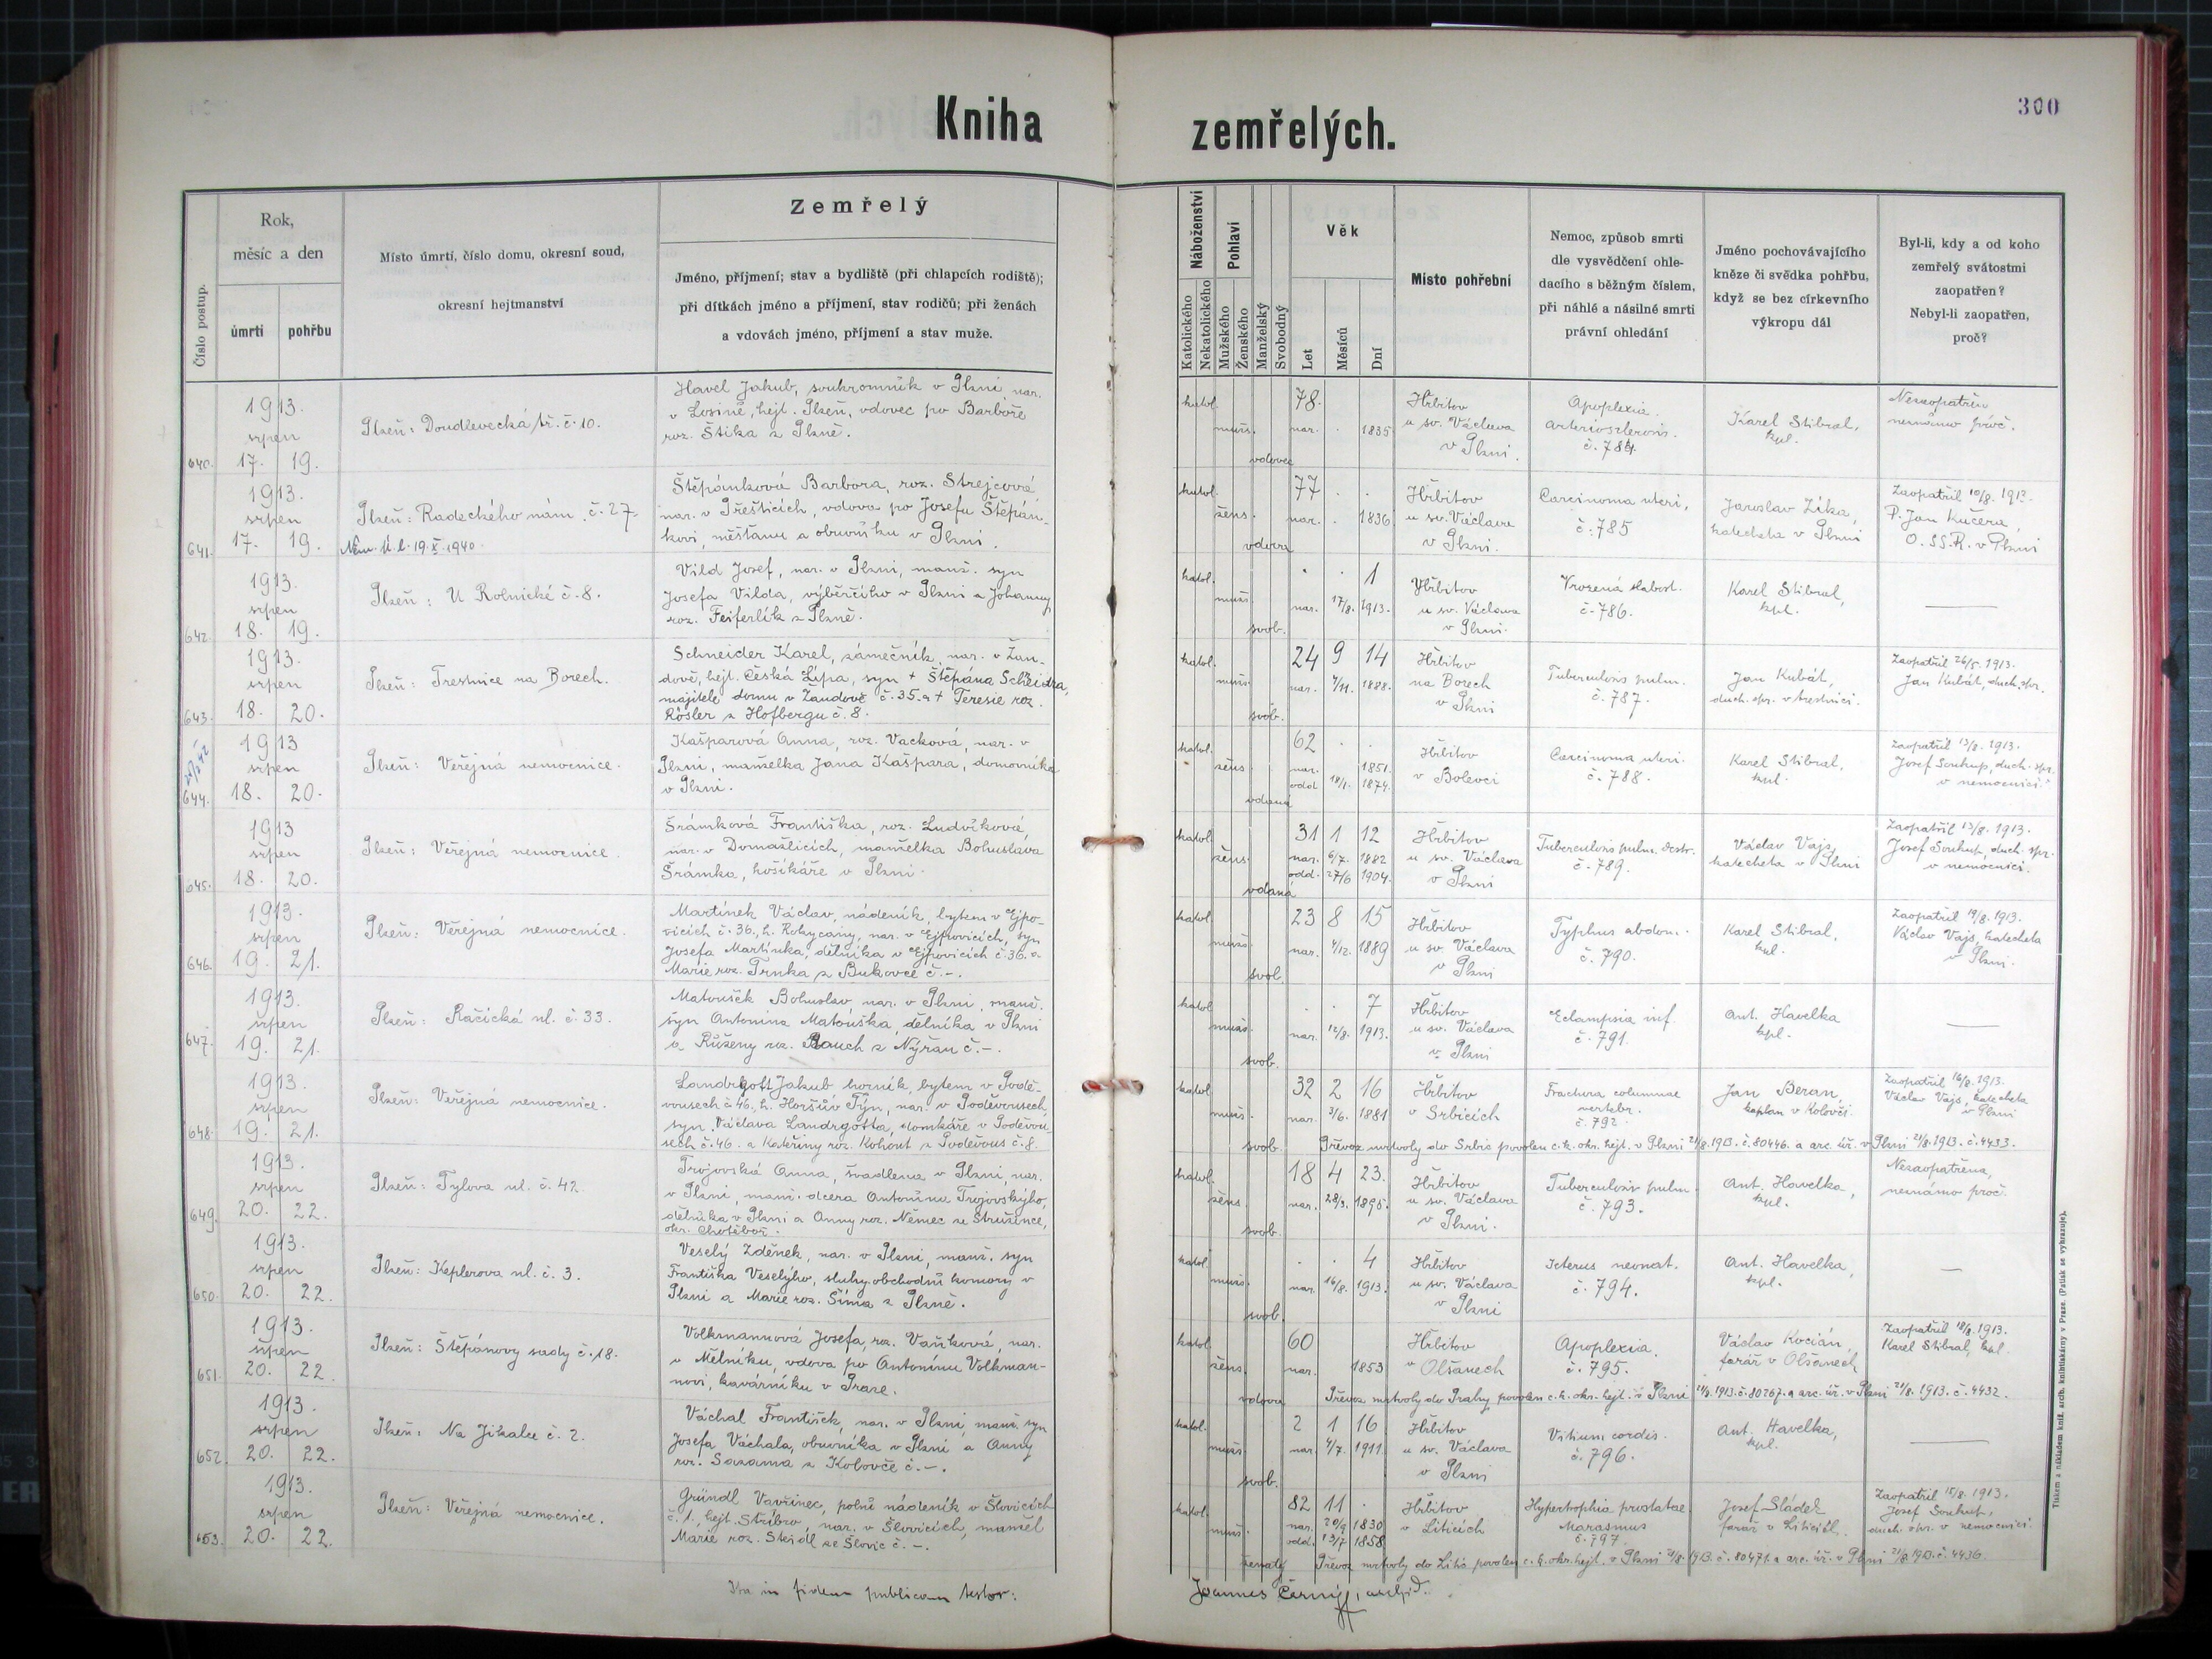 Kniha zemřelých.
300
Číslo postup.
Rok,
měsíc a den
úmrtí
pohřbu
Místo úmrtí, číslo domu, okresní soud,
okresní hejtmanství
Zemřelý
Jméno, příjmení; stav a bydliště (při chlapcích rodiště);
při dítkách jméno a příjmení, stav rodičů; při ženách
a vdovách jméno, příjmení a stav muže.
Náboženství
Katolického
Nekatolického
Pohlaví
Mužského
Ženského
Manželský
Svobodný
Věk
Let
Měsíců
Dní
Místo pohřební
Nemoc, způsob smrti
dle vysvědčení ohle-
dacího s běžným číslem,
při náhlé a násilné smrti
právní ohledání
Jméno pochovávajícího
kněze či svědka pohřbu,
když se bez církevního
výkropu dál
Byl-li, kdy a od koho
zemřelý svátostmi
zaopatřen?
Nebyl-li zaopatřen,
proč?
640.
1913.
srpen
17. 19.
Plzeň: Doudlevecká tř. č. 10.
Havel Jakub, soukromník v Plzni, nar.
v Losině, hejt. Plzeň, vdovec po Barboře
roz. Štika z Plzně.
katol.
muž.
vdovec
78.
nar. . 1835
Hřbitov
u sv. Václava
v Plzni.
Apoplexia.
Arteriosclerosis.
č. 784.
Karel Stibral,
kpl.
Nezaopatřen
neznámo proč.
641.
1913.
srpen
17. 19.
Plzeň: Radeckého nám. č. 27.
Něm. ú. l. 19.X.1940.
Štěpánková Barbora, roz. Strejcová,
nar. v Přešticích, vdova po Josefu Štěpán-
kovi, měšťanu a obuvníku v Plzni.
katol.
žens.
vdova
77 . .
nar. . 1836
Hřbitov
u sv. Václava
v Plzni.
Carcinoma uteri,
č. 785
Jaroslav Zíka,
katecheta v Plzni
Zaopatřil 10/8. 1913.
P. Jan Kučera,
O. SS. R. v Plzni
642.
1913.
srpen
18. 19.
Plzeň: U Rolnické č. 8.
Vild Josef, nar. v Plzni, manž. syn
Josefa Vilda, výběrčího v Plzni a Johanny
roz. Feiferlík z Plzně.
katol.
muž.
svob.
. . 1
nar. 17/8. 1913.
Hřbitov
u sv. Václava
v Plzni.
Vrozená slabost.
č. 786.
Karel Stibral,
kpl.
643.
1913.
srpen
18. 20.
Plzeň: Trestnice na Borech.
Schneider Karel, zámečník, nar. v Žan-
dově, hejt. Česká Lípa, syn + Štěpána Schneidra,
majitele domu v Žandově č. 35. a + Teresie roz.
Rösler z Hofbergu č. 8.
katol.
muž.
svob.
24 9 14
nar. 4/11. 1888.
Hřbitov
na Borech
v Plzni
Tuberculosis pulm.
č. 787.
Jan Kubát,
duch. spr. v trestnici.
Zaopatřil 26/5. 1913.
Jan Kubát, duch. spr.
644.
1913
srpen
18. 20.
Plzeň: Veřejná nemocnice.
Kašparová Anna, roz. Vacková, nar. v
Plzni, manželka Jana Kašpara, domovníka
v Plzni.
katol.
žens.
vdaná
62 . .
nar. 1851.
odd. 18/1. 1874.
Hřbitov
v Bolevci
Carcinoma uteri.
č. 788.
Karel Stibral,
kpl.
Zaopatřil 13/8. 1913.
Josef Soukup, duch. spr.
v nemocnici.
645.
1913
srpen
18. 20.
Plzeň: Veřejná nemocnice.
Šrámková Františka, roz. Ludvíková,
nar. v Domažlicích, manželka Bohuslava
Šrámka, košíkáře v Plzni.
katol.
žens.
vdaná
31 1 12
nar. 6/7. 1882
odd. 27/6 1904.
Hřbitov
u sv. Václava
v Plzni
Tuberculosis pulm. destr.
č. 789.
Václav Vajs,
katecheta v Plzni
Zaopatřil 13/8. 1913.
Josef Soukup, duch. spr.
v nemocnici.
646.
1913.
srpen
19. 21.
Plzeň: Veřejná nemocnice.
Martínek Václav, nádeník, bytem v Ejpo-
vicích č. 36., h. Rokycany, nar. v Ejpovicích, syn
Josefa Martínka, dělníka v Ejpovicích č. 36. a
Marie roz. Trnka z Bukovce č. -.
katol.
muž.
svob.
23 8 15
nar. 4/12. 1889
Hřbitov
u sv. Václava
v Plzni
Typhus abdom.
č. 790.
Karel Stibral,
kpl.
Zaopatřil 19/8. 1913.
Václav Vajs, katecheta
v Plzni.
647.
1913.
srpen
19. 21.
Plzeň: Račická ul. č. 33.
Matoušek Bohuslav nar. v Plzni, manž.
syn Antonína Matouška, dělníka v Plzni
a Růženy roz. Rauch z Nýřan č. -.
katol.
muž.
svob.
. . 7
nar. 12/8. 1913.
Hřbitov
u sv. Václava
v Plzni
Eclampsia inf.
č. 791.
Ant. Havelka
kpl.
648.
1913.
srpen
19. 21.
Plzeň: Veřejná nemocnice.
Landrgott Jakub, horník, bytem v Podě-
vousech č. 46., h. Horšův Týn, nar. v Poděvousech,
syn Václava Landrgotta, domkáře v Poděvou-
sech č. 46. a Kateřiny roz. Kohout z Poděvous č. 8.
katol.
muž.
svob.
32 2 16
nar. 3/6. 1881
Hřbitov
v Srbicích
Fractura columnae
vertebr.
č. 792.
Jan Beran,
kaplan v Kolovči.
Zaopatřil 16/8. 1913.
Václav Vajs, katecheta
v Plzni
Převoz mrtvoly do Srbic povolen c. k. okr. hejt. v Plzni 21/8. 1913. č. 80446. a arc. úř. v Plzni 21/8. 1913. č. 4433.
649.
1913.
srpen
20. 22.
Plzeň: Tylova ul. č. 42.
Trojovská Anna, švadlena v Plzni, nar.
v Plzni, manž. dcera Antonína Trojovského,
dělníka v Plzni a Anny roz. Němec ze Stružince,
okr. Chotěboř.
katol.
žens.
svob.
18 4 23.
nar. 28/3. 1895.
Hřbitov
u sv. Václava
v Plzni.
Tuberculosis pulm.
č. 793.
Ant. Havelka,
kpl.
Nezaopatřena,
neznámo proč.
650.
1913.
srpen
20. 22.
Plzeň: Keplerova ul. č. 3.
Veselý Zdeněk, nar. v Plzni, manž. syn
Františka Veselýho, sluhy obchodní komory v
Plzni a Marie roz. Šíma z Plzně.
katol.
muž.
svob.
. . 4
nar. 16/8. 1913.
Hřbitov
u sv. Václava
v Plzni
Icterus neonat.
č. 794.
Ant. Havelka,
kpl.
651.
1913.
srpen
20. 22.
Plzeň: Štěpánovy sady č. 18.
Volkmannová Josefa, roz. Vaňková, nar.
v Mělníku, vdova po Antonínu Volkman-
novi, kavárníku v Praze.
katol.
žens.
vdova
60
nar. 1853
Hřbitov
v Olšanech
Apoplexia.
č. 795.
Václav Kocián,
farář v Olšanech
Zaopatřil 18/8. 1913.
Karel Stibral, kpl.
Převoz mrtvoly do Prahy povolen c. k. okr. hejt. v Plzni 21/8. 1913. č. 80267. a arc. úř. v Plzni 21/8. 1913. č. 4432.
652.
1913.
srpen
20. 22.
Plzeň: Na Jikalce č. 2.
Váchal František, nar. v Plzni, manž. syn
Josefa Váchala, obuvníka v Plzni a Anny
roz. Sazama z Kolovče č. -.
katol.
muž.
svob.
2 1 16
nar. 4/7. 1911.
Hřbitov
u sv. Václava
v Plzni
Vitium cordis.
č. 796.
Ant. Havelka,
kpl.
653.
1913.
srpen
20. 22.
Plzeň: Veřejná nemocnice.
Gründl Vavřinec, polní nádeník v Šlovicích
č. 1., hejt. Stříbro, nar. v Šlovicích, manžel
Marie roz. Steidl ze Šlovic č. -.
katol.
muž.
ženatý
82 11 .
nar. 20/9 1830
odd. 13/7 1858.
Hřbitov
v Liticích
Hypertrophia prostatae
Marasmus
č. 797.
Josef Sládek
farář v Liticích.
Zaopatřil 15/8. 1913.
Josef Soukup,
duch. spr. v nemocnici.
Převoz mrtvoly do Litic povolen c. k. okr. hejt. v Plzni 21/8. 1913. č. 80471. a arc. úř. v Plzni 21/8. 1913. č. 4436.
Ita in fidem publicam testor:
Joannes Černý, archid.
Tiskem a nákladem kníž. arcib. knihtiskárny v Praze. (Patisk se vyhrazuje).